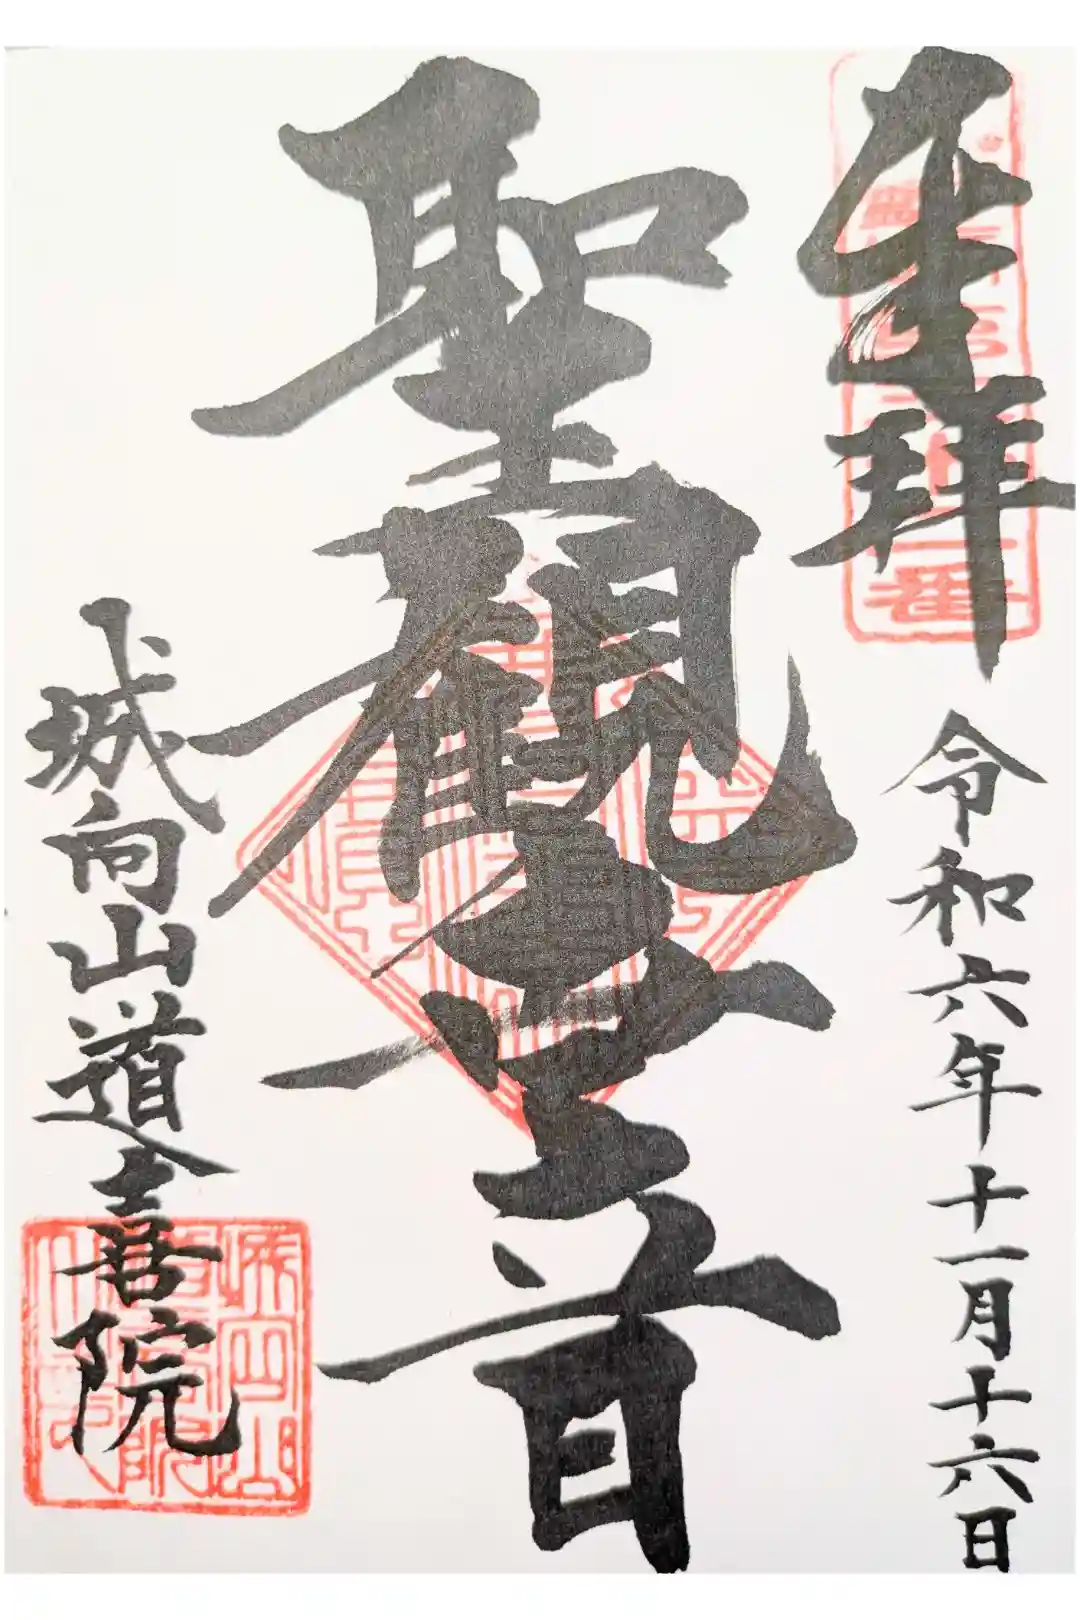 奉拝
令和六年十一月十六日
聖觀世音
城向山道善院